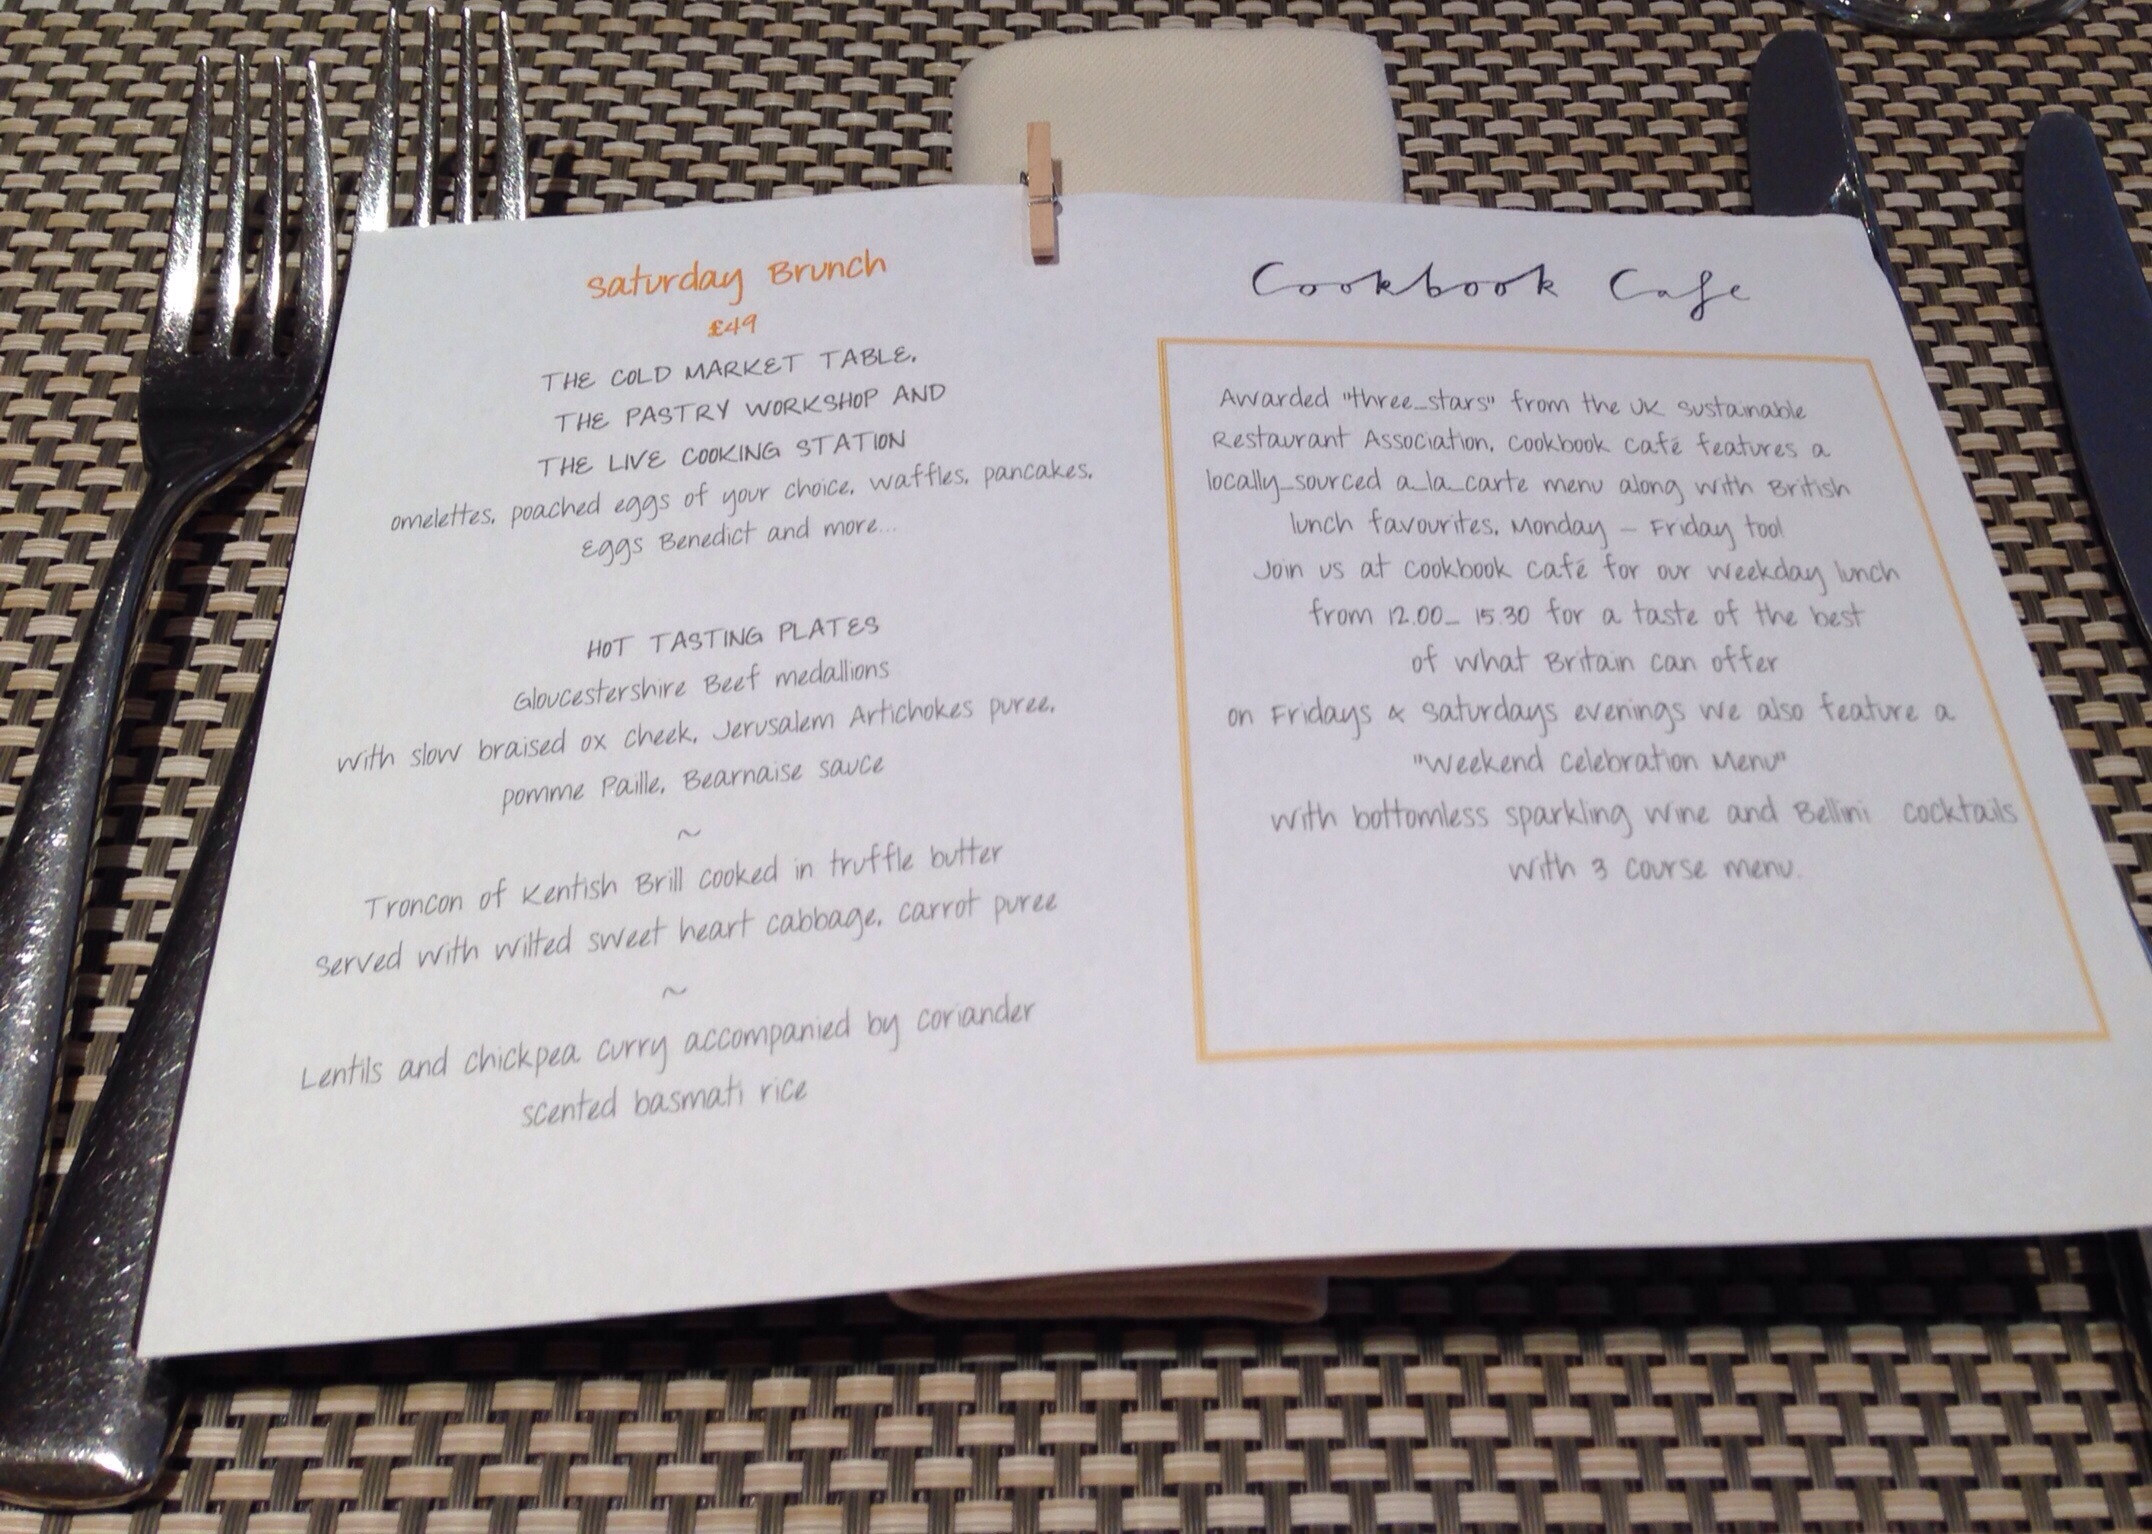 Saturday Brunch
£49
THE COLD MARKET TABLE,
THE PASTRY WORKSHOP AND
THE LIVE COOKING STATION
omelettes, poached eggs of your choice, waffles, pancakes,
Eggs Benedict and more...
HOT TASTING PLATES
Gloucestershire Beef medallions
with slow braised ox cheek, Jerusalem Artichokes puree,
pomme Paille, Bearnaise sauce
~
Troncon of Kentish Brill cooked in truffle butter
served with wilted sweet heart cabbage, carrot puree
~
Lentils and chickpea curry accompanied by coriander
scented basmati rice
Cookbook Cafe
Awarded "three_stars" from the UK Sustainable
Restaurant Association, Cookbook Café features a
locally_sourced a_la_carte menu along with British
lunch favourites, Monday – Friday too!
Join us at Cookbook Café for our weekday lunch
from 12.00_ 15.30 for a taste of the best
of what Britain can offer
on Fridays & Saturdays evenings we also feature a
"Weekend Celebration Menu"
with bottomless sparkling wine and Bellini cocktails
with 3 course menu.